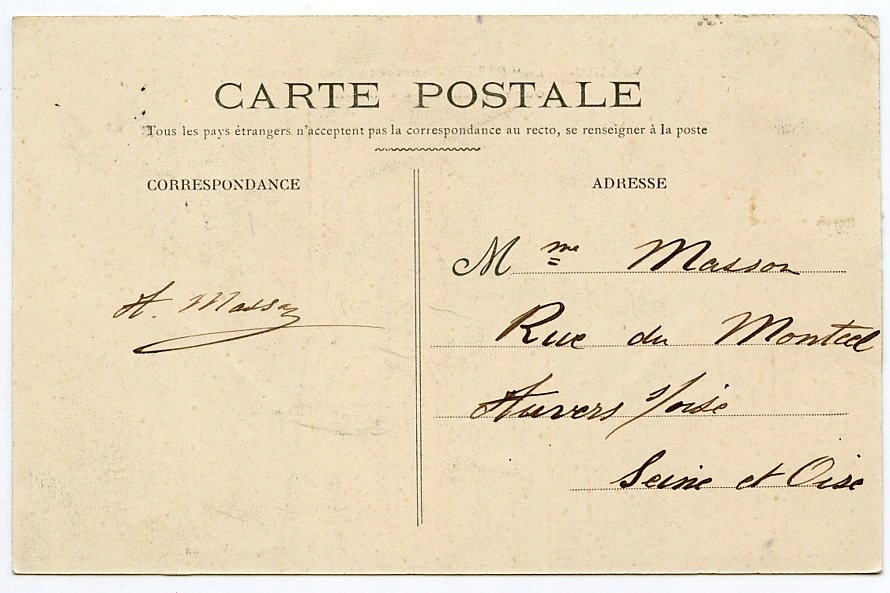 CARTE POSTALE
Tous les pays étrangers n'acceptent pas la correspondance au recto, se renseigner à la poste
CORRESPONDANCE
A. Masson
ADRESSE
Mme Masson
Rue du Montcel
Auvers s/oise
Seine et Oise